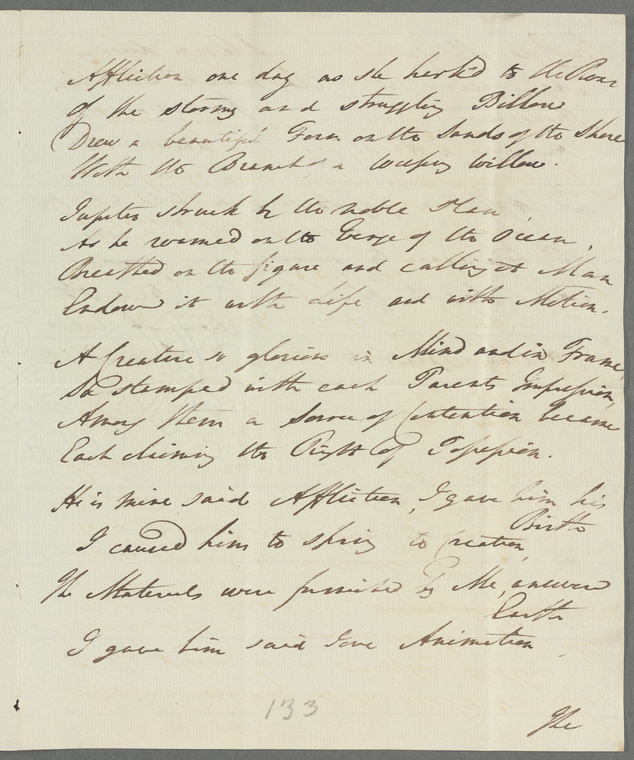 Affliction one day as she hark'd to the Roar
of the stormy and struggling Billow
Drew a beautiful Form on the Sands of the Shore
With the Branch of a weeping Willow.
Jupiter struck by the noble Plan,
As he roamed on the Verge of the Ocean,
Breathed on the figure and calling it Man
Endow'd it with Life and with Motion.
A Creature so glorious in Mind and in Frame,
So stamped with each Parents Impression,
Among them a Source of Contention became
Each claiming the Right of Possession.
He is mine said Affliction, I gave him his
Birth
I caused him to spring to Creation,
The Materials were furnished by Me, answered
Earth
I gave him said Jove Animation.
133
The